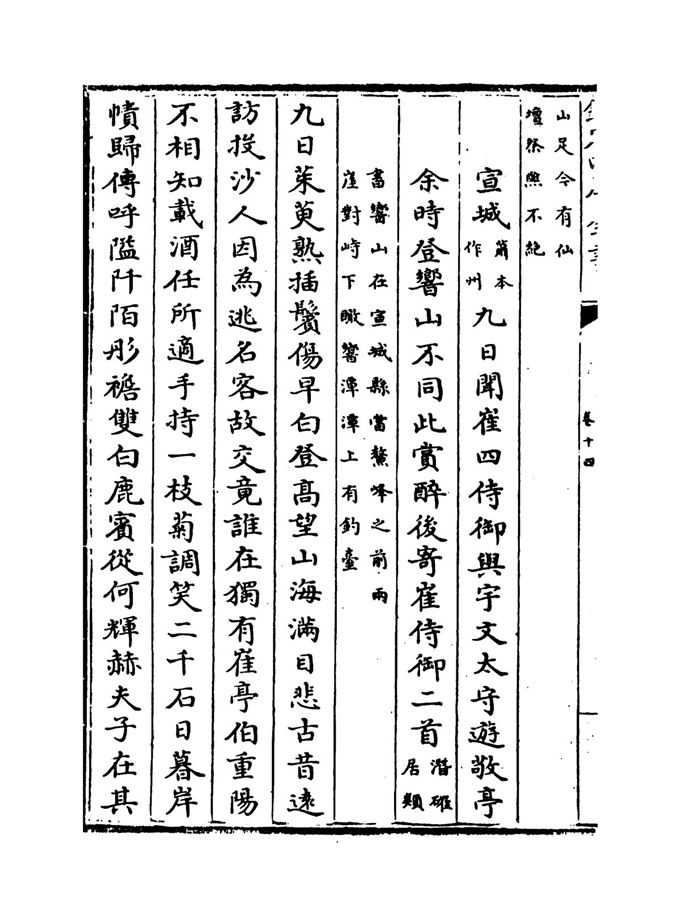 卷十四
山足今有仙
壇祭興不絶
宣城蕭本作州九日聞崔四侍御與宇文太守遊敬亭
余時登響山不同此賞醉後寄崔侍御二首潛確居類
書響山在宣城縣當鰲峰之前兩
崖對峙下瞰響潭潭上有釣臺
九日茱萸熟插鬢傷早白登髙望山海滿目悲古昔遠
訪投沙人因為逃名客故交竟誰在獨有崔亭伯重陽
不相知載酒任所適手持一枝菊調笑二千石日暮岸
幘歸傳呼隘阡陌彤襜雙白鹿賓從何輝赫夫子在其